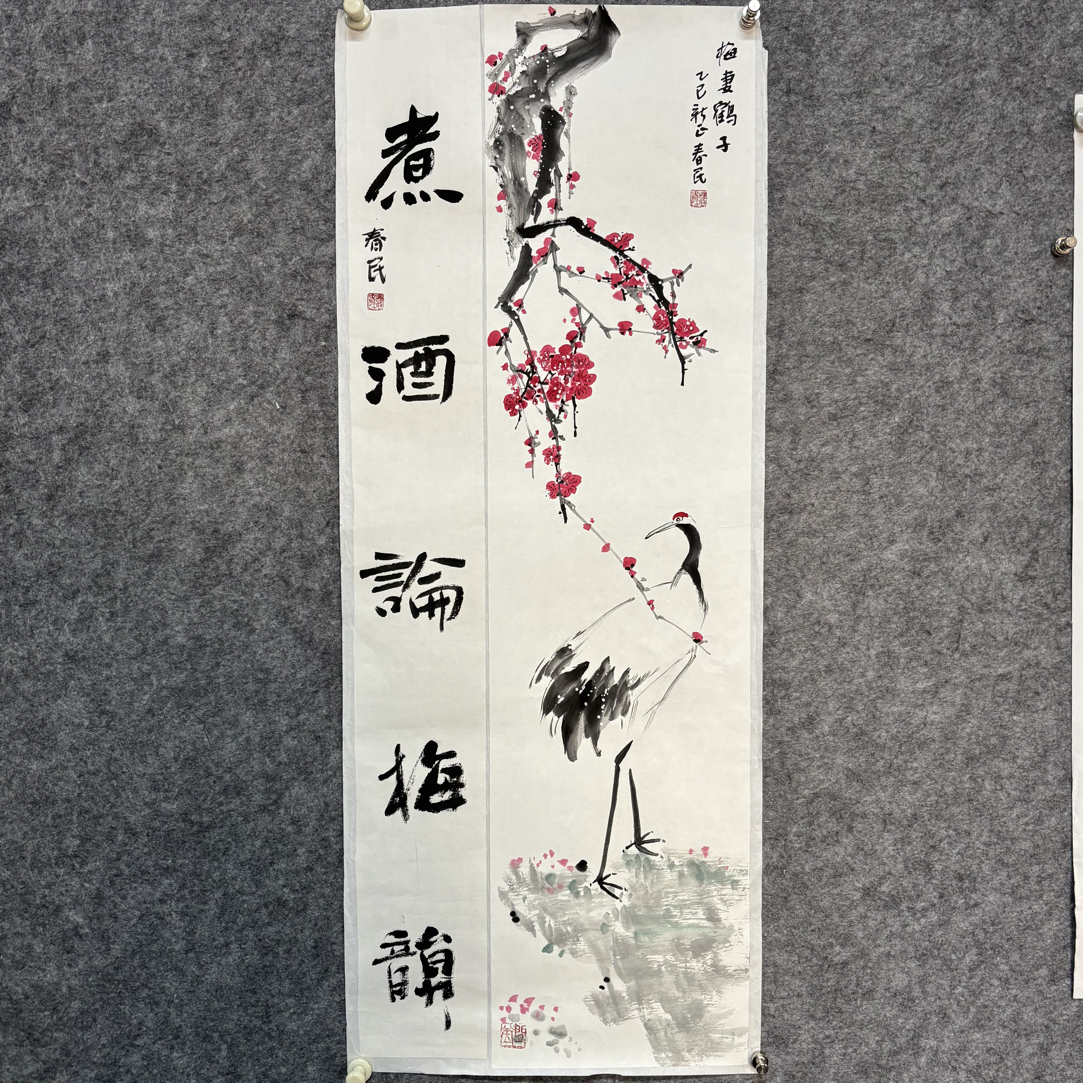 梅妻鶴子
乙巳新正春民
煮酒論梅韻
春民